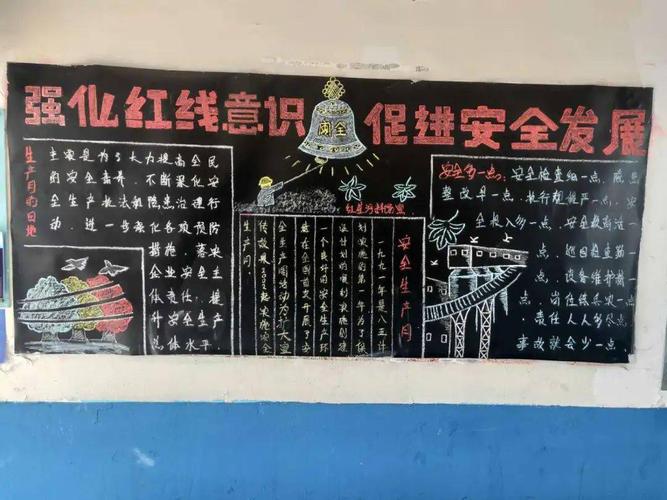 强化红线意识 促进安全发展
安全
生产月的目地
主要是为了大力提高全民
的安全素养，不断深化安
全生产执法和隐患治理行
动，进一步强化各项预防
措施，落实
企业安全主
体责任，提
升安全生产
总体水平
安全生产月
一九九一年是八五计
划实施的第一年为了保
证计划的顺利实施创造
一个良好的安全生产环
境在全国首次开展了安
全生产周活动为扩大宣
生产月
安全多一点：安全检查细一点，隐患
整改早一点，执行规程严一点，安
全投入多一点，安全教育活一
点，巡回检查勤一
点，设备维护精一
点，岗位练兵实一点
责任人人多尽点
事故就会少一点